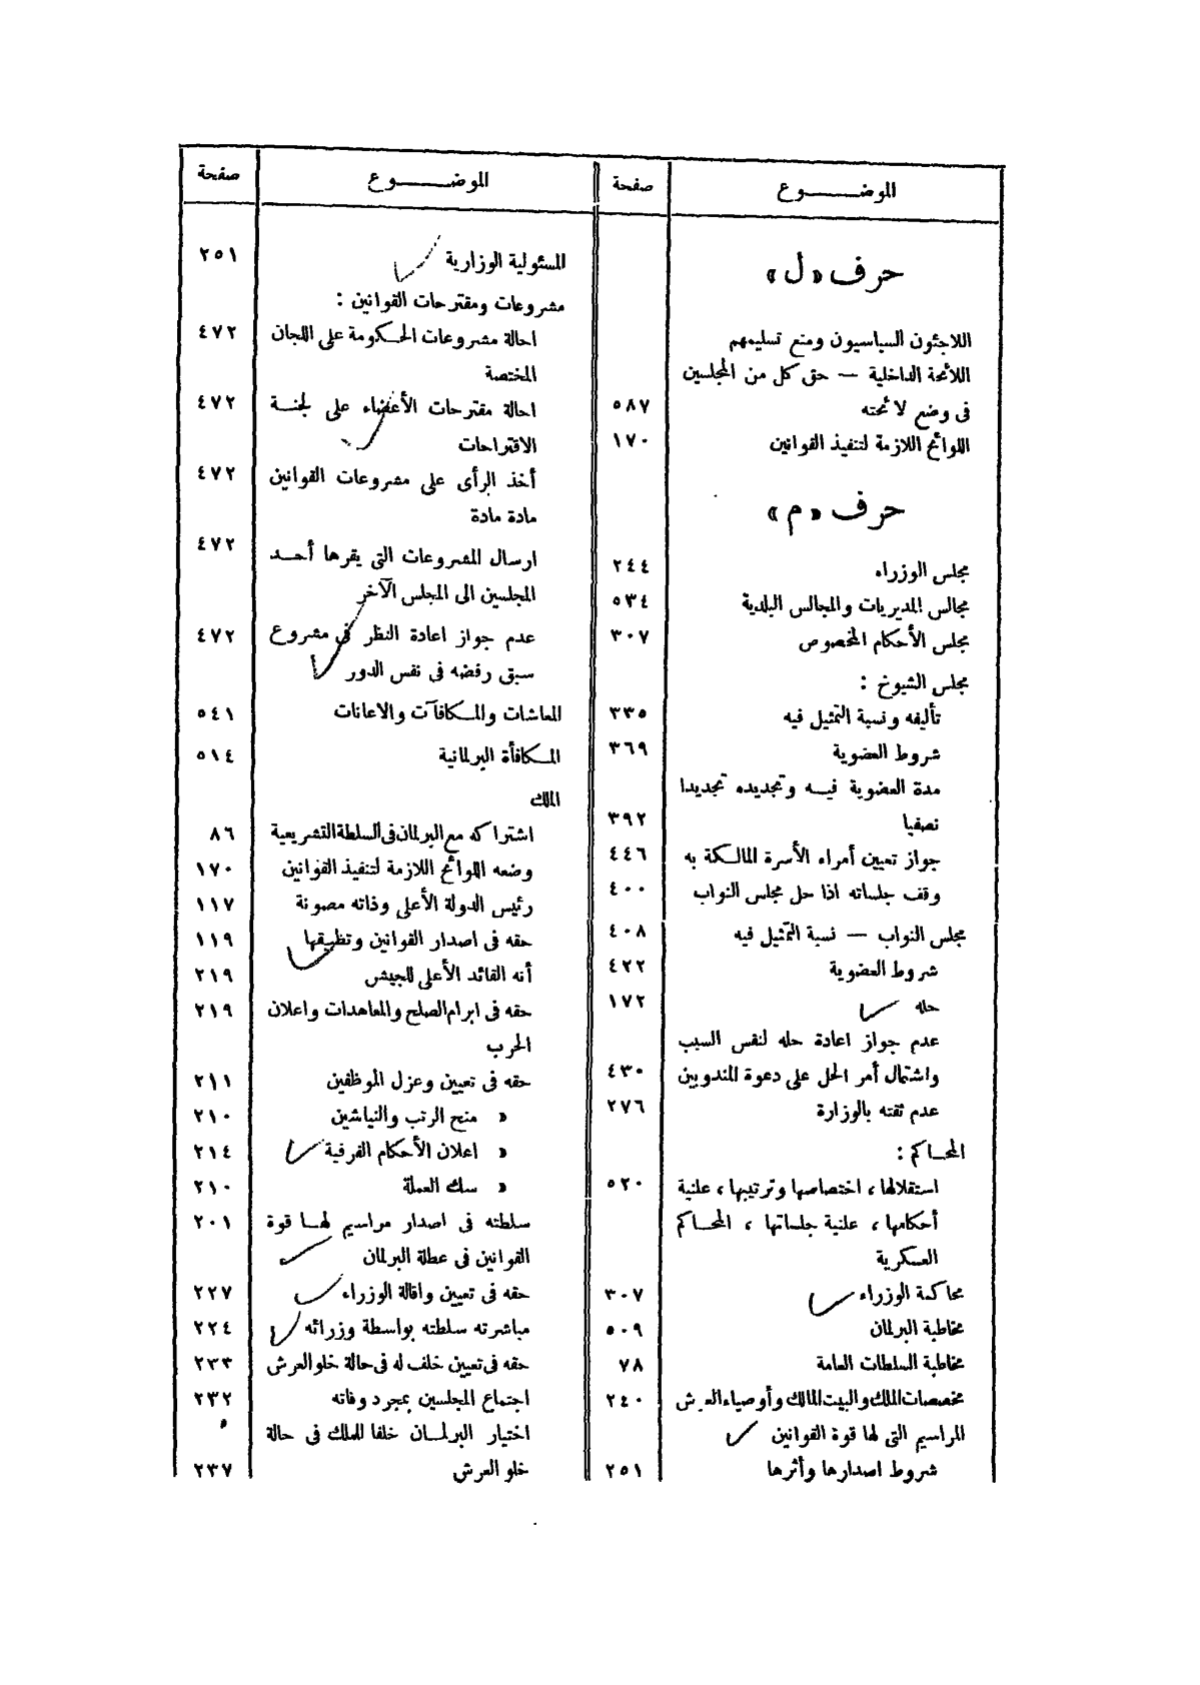 الموضـــوع صفحة
حرف «ل»
اللاجئون السياسيون ومنع تسليمهم
اللائحة الداخلية — حق كل من المجلسين
فى وضع لائحته ٥٨٧
اللوائح اللازمة لتنفيذ القوانين ١٧٠
حرف «م»
مجلس الوزراء ٢٤٤
مجالس المديريات والمجالس البلدية ٥٣٤
مجلس الأحكام المخصوص ٣٠٧
مجلس الشيوخ :
تأليفه ونسبة التمثيل فيه ٣٣٥
شروط العضوية ٣٦٩
مدة العضوية فيـه وتجديده تجديدا
نصفيا ٣٩٢
جواز تعيين أمراء الأسرة المالـكة به ٤٤٦
وقف جلساته اذا حل مجلس النواب ٤٠٠
مجلس النواب — نسبة التمثيل فيه ٤٠٨
شروط العضوية ٤٢٢
حله ١٧٢
عدم جواز اعادة حله لنفس السبب
واشتمال أمر الحل على دعوة المندوبين ٤٣٠
عدم ثقته بالوزارة ٢٧٦
المحـاكم :
استقلالها ، اختصاصها وترتيبها ، علنية ٥٢٠
أحكامها ، علنية جلساتها ، المحـاكم
العسكرية
محاكمة الوزراء ٣٠٧
مخاطبة البرلمان ٥٠٩
مخاطبة السلطات العامة ٧٨
مخصصات الملك والبيت المالك وأوصياء العرش ٢٤٠
المراسيم التى لها قوة القوانين
شروط اصدارها وأثرها ٢٥١
الموضـــوع صفحة
المسئولية الوزارية ٢٥١
مشروعات ومقترحات القوانين :
احالة مشروعات الحـكومة على اللجان ٤٧٢
المختصة
احالة مقترحات الأعضاء على لجنـة ٤٧٢
الاقتراحات
أخذ الرأى على مشروعات القوانين ٤٧٢
مادة مادة
ارسال المشروعات التى يقرها أحـد ٤٧٢
المجلسين الى المجلس الآخر
عدم جواز اعادة النظر فى مشروع ٤٧٢
سبق رفضه فى نفس الدور
المعاشات والمـكافآت والاعانات ٥٤١
المـكافأة البرلمانية ٥١٤
الملك
اشتراكه مع البرلمان فى السلطة التشريعية ٨٦
وضعه اللوائح اللازمة لتنفيذ القوانين ١٧٠
رئيس الدولة الأعلى وذاته مصونة ١١٧
حقه فى اصدار القوانين وتطبيقها ١١٩
أنه القائد الأعلى للجيش ٢١٩
حقه فى ابرام الصلح والمعاهدات واعلان ٢١٩
الحرب
حقه فى تعيين وعزل الموظفين ٢١١
« منح الرتب والنياشين ٢١٠
« اعلان الأحكام العرفية ٢١٤
« سك العملة ٢١٠
سلطته فى اصدار مراسيم لهـا قوة ٢٠١
القوانين فى عطلة البرلمان
حقه فى تعيين واقالة الوزراء ٢٢٧
مباشرته سلطته بواسطة وزرائه ٢٢٤
حقه فى تعيين خلف له فى حالة خلو العرش ٢٣٣
اجتماع المجلسين بمجرد وفاته ٢٣٢
اختيار البرلمـان خلفا للملك فى حالة
خلو العرش ٢٣٧